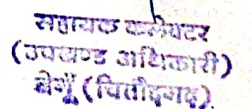 सहायक कलेक्टर
(उपखण्ड अधिकारी)
बेगूँ (चितौड़गढ़)